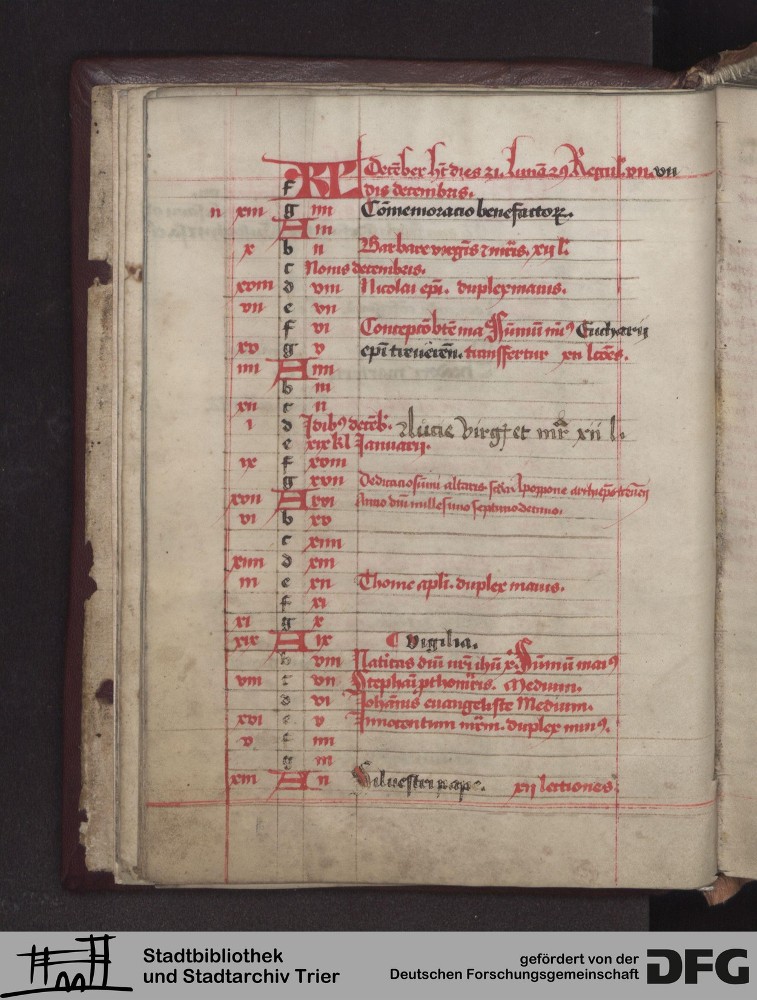 Decēber hꝫ dies 31. Lunā 29 Regul. vii. vii
f KL dis decembris.
n xiii g iiii Cōmemoracio benefactoꝝ.
A iii
x b ii Barbare virgīs ⁊ mr̄is. xii l.
c Nonis decembris.
xviii d viii Nicolai epī. duplex maius.
vii e vii
f vi Concepcō btē ma. Sūmū mi9 Eucharii
xv g v epī treuereñ. transffertur xii lcōes.
iiii A iiii
b iii
xii c ii
i d Idib9 decēb. Lucie virg et mr̄ xii l.
e xix kl Januarij.
ix f xviii
g xvii Dedicacio sūmi altaris
xvii A xvi Anno dn̄i millesimo septimo decimo.
vi b xv
c xiiii
xiiii d xiii
iii e xii Thome apli. duplex maius.
f xi
xi g x
xix A ix vigilia.
b viii Natitas dn̄i nr̄i ihū x. Sūmū mai9
viii c vii Stephāi pthomr̄is. Medium.
d vi Johānis euangeliste Medium.
xvi e v Innocentum mr̄m. duplex min9.
v f iiii
g iii
xiii A ii Siluestri pape. xij lectiones.
Stadtbibliothek
und Stadtarchiv Trier
gefördert von der
Deutschen Forschungsgemeinschaft
DFG